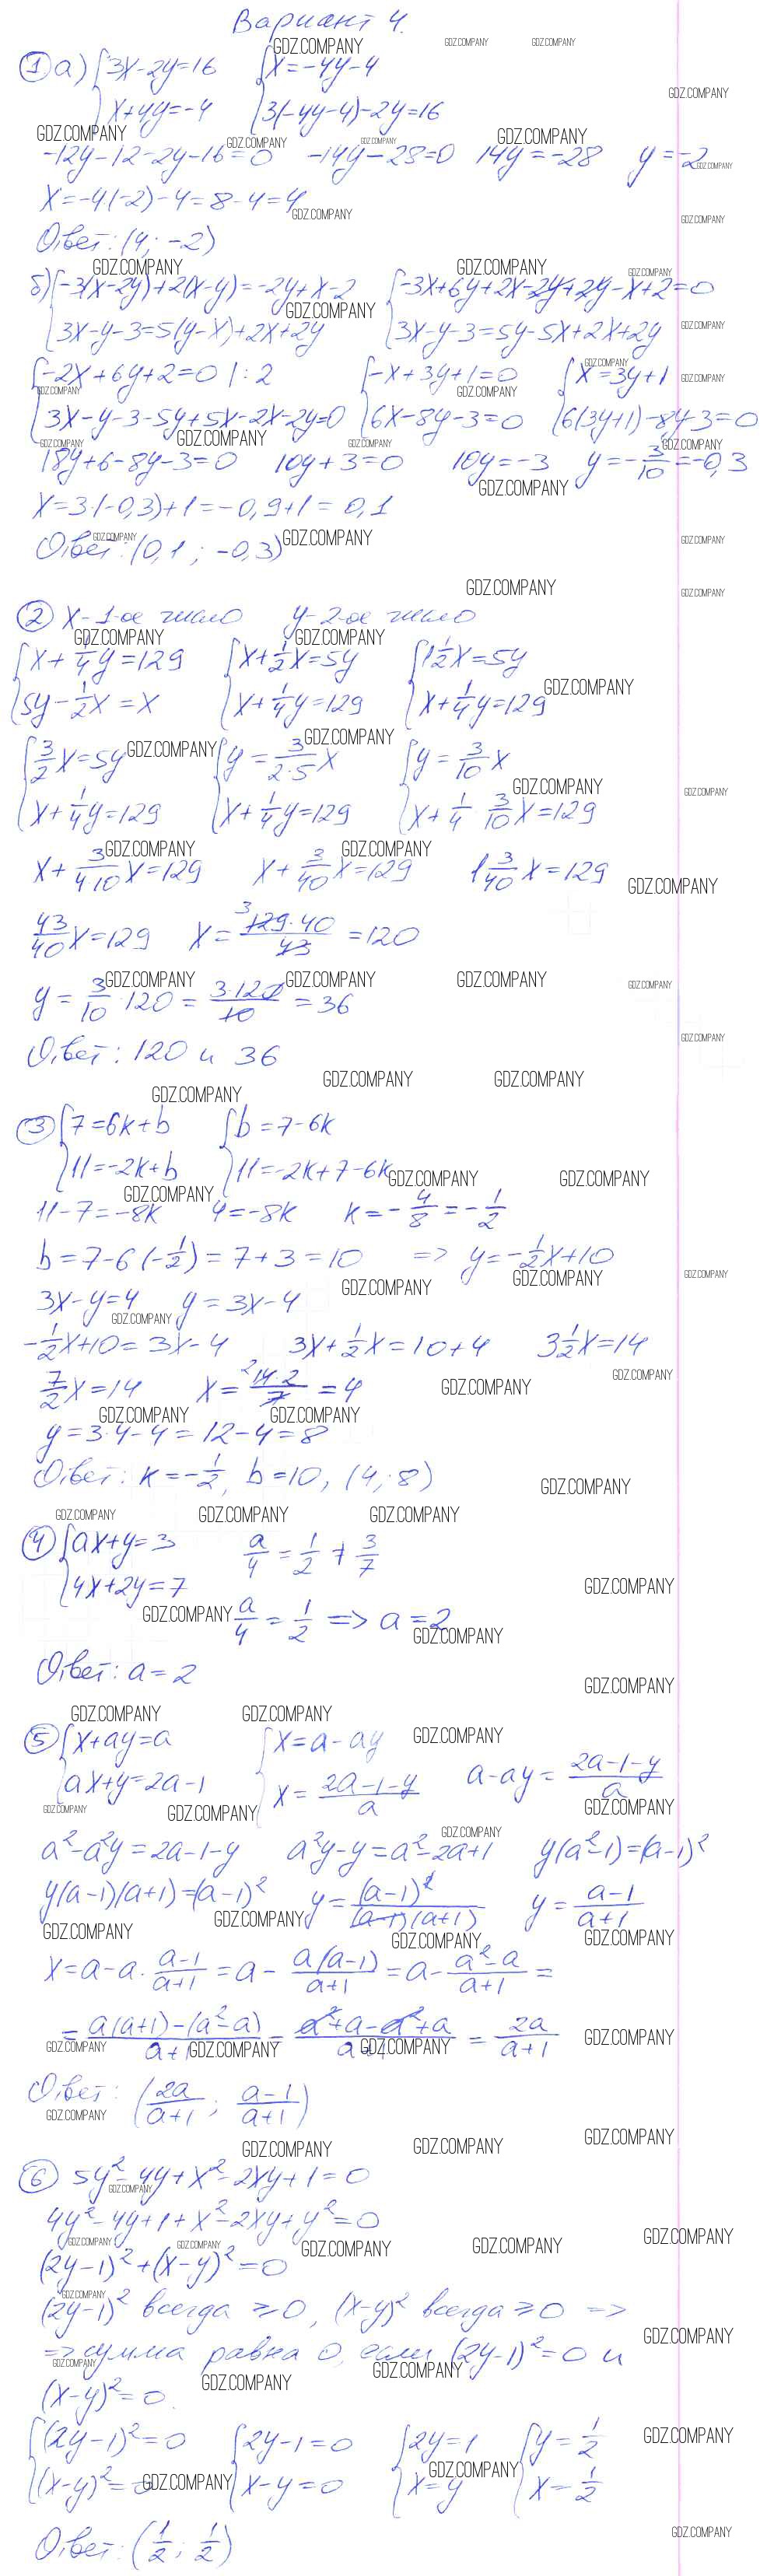 Вариант 4.
① а) {3x-2y=16 {x=-4y-4
{x+4y=-4 {3(-4y-4)-2y=16
-12y-12-2y-16=0 -14y-28=0 14y=-28 y=-2
x=-4(-2)-4=8-4=4
Ответ: (4; -2)
б) {-3(x-2y)+2(x-y)=-2y+x-2 {-3x+6y+2x-2y+2y-x+2=0
{3x-y-3=5(y-x)+2x+2y {3x-y-3=5y-5x+2x+2y
{-2x+6y+2=0 |:2 {-x+3y+1=0 {x=3y+1
{3x-y-3-5y+5x-2x-2y=0 {6x-8y-3=0 {6(3y+1)-8y-3=0
18y+6-8y-3=0 10y+3=0 10y=-3 y=-3/10=-0,3
x=3·(-0,3)+1=-0,9+1=0,1
Ответ: (0,1; -0,3)
② x-1-ое число y-2-ое число
{x+1/4y=129 {x+1/2x=5y {1 1/2x=5y
{5y-1/2x=x {x+1/4y=129 {x+1/4y=129
{3/2x=5y {y=3/(2·5)x {y=3/10x
{x+1/4y=129 {x+1/4y=129 {x+1/4 3/10x=129
x+3/(4·10)x=129 x+3/40x=129 1 3/40x=129
43/40x=129 x=129·40/43=120
y=3/10·120=3·120/10=36
Ответ: 120 и 36
③ {7=6k+b {b=7-6k
{11=-2k+b {11=-2k+7-6k
11-7=-8k 4=-8k k=-4/8=-1/2
b=7-6(-1/2)=7+3=10 => y=-1/2x+10
3x-y=4 y=3x-4
-1/2x+10=3x-4 3x+1/2x=10+4 3 1/2x=14
7/2x=14 x=14·2/7=4
y=3·4-4=12-4=8
Ответ: k=-1/2, b=10, (4; 8)
④ {ax+y=3 a/4=1/2≠3/7
{4x+2y=7
a/4=1/2 => a=2
Ответ: a=2
⑤ {x+ay=a {x=a-ay
{ax+y=2a-1 {x=(2a-1-y)/a a-ay=(2a-1-y)/a
a²-a²y=2a-1-y a²y-y=a²-2a+1 y(a²-1)=(a-1)²
y(a-1)(a+1)=(a-1)² y=(a-1)²/((a-1)(a+1)) y=(a-1)/(a+1)
x=a-a·(a-1)/(a+1)=a-a(a-1)/(a+1)=a-(a²-a)/(a+1)=
=(a(a+1)-(a²-a))/(a+1)=(a²+a-a²+a)/(a+1)=2a/(a+1)
Ответ: (2a/(a+1); (a-1)/(a+1))
⑥ 5y²-4y+x²-2xy+1=0
4y²-4y+1+x²-2xy+y²=0
(2y-1)²+(x-y)²=0
(2y-1)² всегда ≥0, (x-y)² всегда ≥0 =>
=> сумма равна 0, если (2y-1)²=0 и
(x-y)²=0.
{(2y-1)²=0 {2y-1=0 {2y=1 {y=1/2
{(x-y)²=0 {x-y=0 {x=y {x=1/2
Ответ: (1/2; 1/2)
GDZ.COMPANY